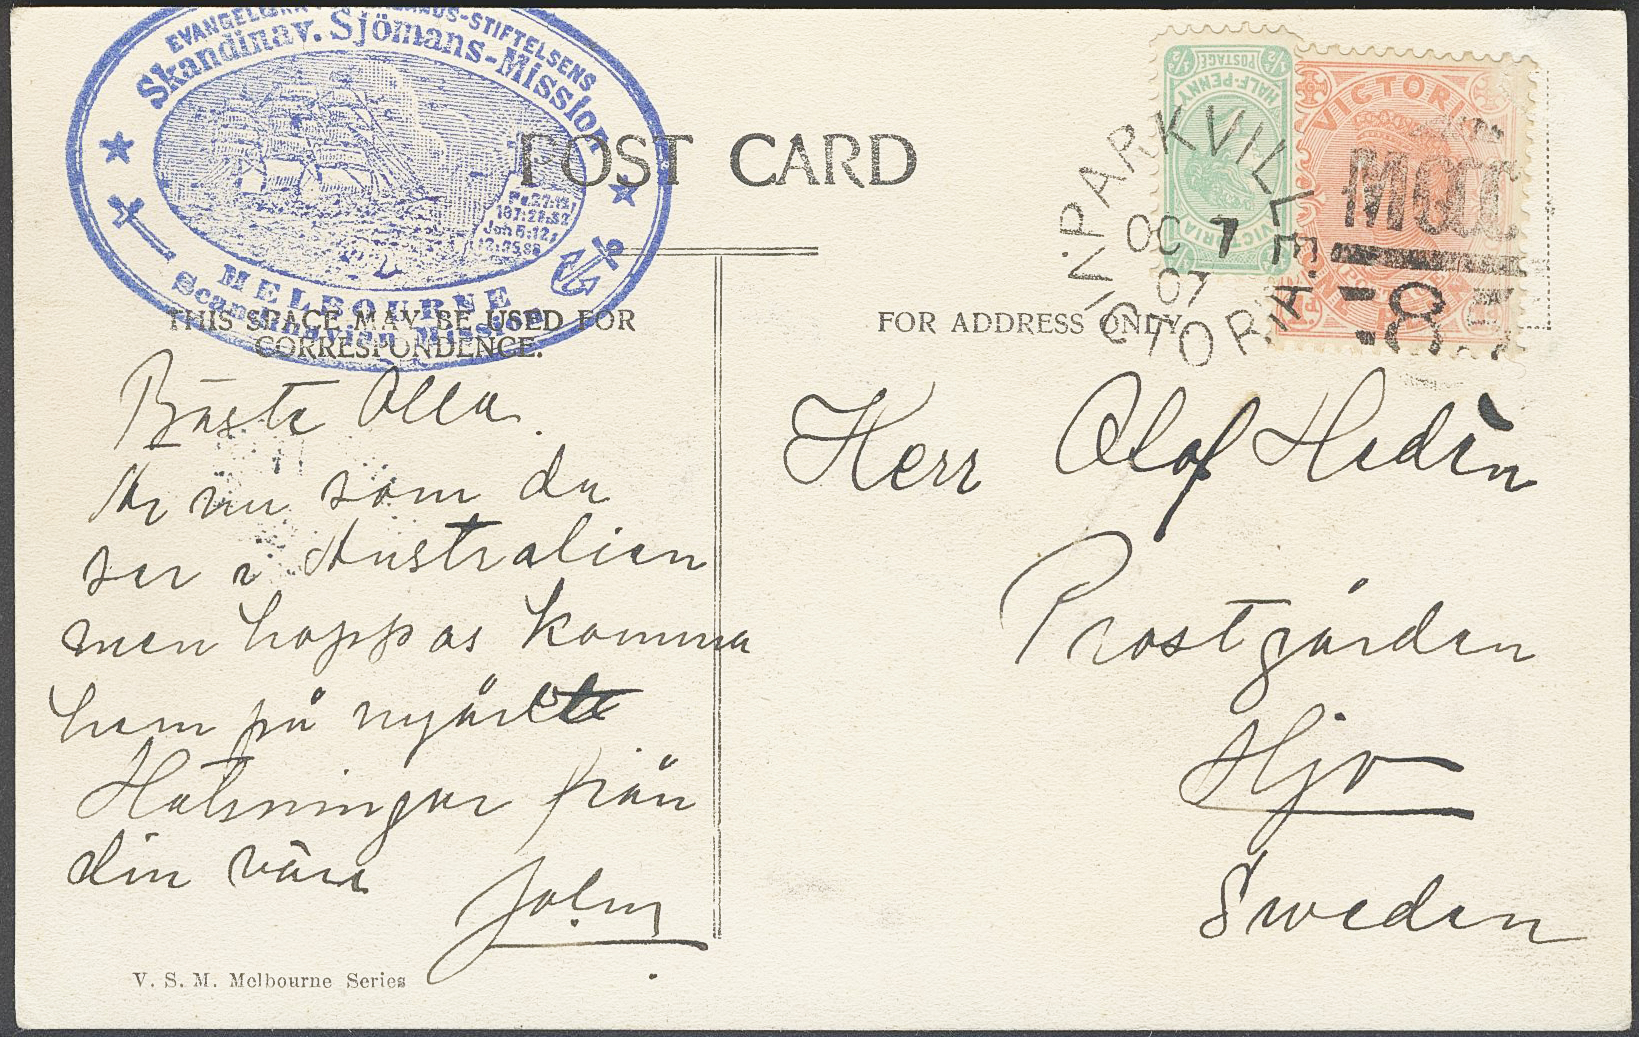 EVANGELISKA FOSTERLANDS-STIFTELSENS
Skandinav. Sjömans-Mission
Ps. 27:12;
107:23-32
Joh 5:12;
MELBOURNE
Scandinavian Mission
POST CARD
THIS SPACE MAY BE USED FOR
CORRESPONDENCE.
FOR ADDRESS ONLY
HALF-PENNY
POSTAGE
½ ½
VICTORIA
VICTORIA
PARKVILLE
OC 7
07
VICTORIA
8
Bäste Olla.
Är nu som du
ser i Australien
men hoppas komma
hem på nyåret
Hälsningar från
din vän
John
Herr Olof Hedén
Prostgården
Hjo
Sweden
V. S. M. Melbourne Series